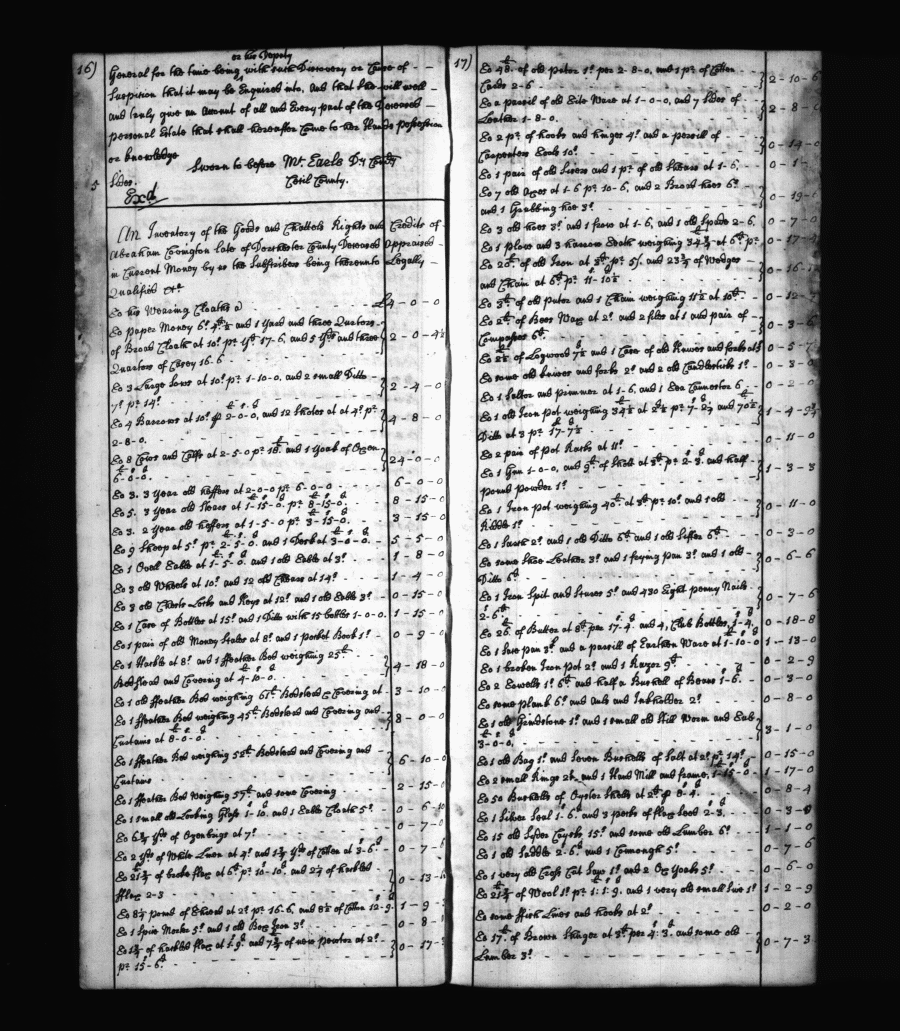 16)
or his Deputy
General for the time being with such Discovery or Cause of
Suspicion that it may be Enquired into, and that she will well
and truly give an Account of all and Every part of the Deceaseds
personal Estate that shall hereafter Come to her Hands possession
or knowledge Sworn to before Mr. Earle Dy Comry
Cecil County.
Exd
An Inventory of the Goods and Chattels Rights and Credits of
Abraham Covington late of Dorchester County Deceased Appraised
in Current Money by us the Subscribers being thereunto Legally
Qualified &c
To his Wearing Cloaths £4-0-0
To paper Money 6s. 4d½ and 1 Yard and three Quarters
of Broad Cloath at 10s. pr. Yd 17-6, and 5 Yds and three 2-0-4½
Quarters of Cersy 16-6
To 3 Large Sows at 10s. pr. 1-10-0. and 2 small Ditto 2-4-0
7s. pr. 14s.
To 4 Barrows at 10s. pr. 2-0-0, and 12 Shotes at 4s. pr. 4-8-0
2-8-0.
To 8 Cows and Calfs at 2-5-0 pr. 18£. and 1 Yoak of Oxen 24-0-0
6-0-0.
To 3. 3 Year old heffers at 2-0-0 pr. 6-0-0 6-0-0
To 5. 3 Year old Steers at 1-15-0. pr. 8-15-0. 8-15-0
To 3. 2 Year old heffers at 1-5-0 pr. 3-15-0. 3-15-0
To 9 Sheep at 5s. pr. 2-5-0. and 1 Desk at 3-0-0. 5-5-0
To 1 Ovell Table at 1-5-0. and 1 old Table at 3s. 1-8-0
To 3 old Wheels at 10s. and 12 old Chears at 14s. 1-4-0
To 3 old Chests Locks and Keys at 12s. and 1 old Table 3s. 0-15-0
To 1 Case of Bottles at 15s. and 1 Ditto with 15 bottles 1-0-0. 1-15-0
To 1 pair of old Money Scales at 8s. and 1 Pocket Book 1s. 0-9-0
To 1 Hackle at 8s. and 1 ffeather Bed weighing 25lb 4-18-0
Bedstead and Covering at 4-10-0.
To 1 old ffeather Bed weighing 61lb Bedstead & Covering at 3-10-0
To 1 ffeather Bed weighing 45lb Bedstead and Covering and 8-0-0
Curtains at 8-0-0.
To 1 ffeather Bed weighing 52lb Bedstead and Covering and 6-10-0
Curtains
To 1 ffeather Bed Weighing 57lb. and some Covering 2-15-0
To 1 small old Looking Glass 1-10. and 1 Table Cloath 5s. 0-6-10
To 6¾ Yds. of Ozenbrigs at 7s. 0-7-0
To 2 Yds of White Linen at 4s. and 1¾ Yds. of Cotten at 3-6d. 0-7-
To 21¾ of Tache flax at 6d. pr. 10-10d. and 2¼ of hackled 0-13-
fflax 2-3
To 8¼ pound of Thread at 2s. pr. 16-6, and 8½ of Cotten 12-9. 1-9-3
To 1 Spice Morter 5s. and 1 old Box Iron 3s. 0-8-
of hackled flax at and 7¾ of new pewter at 2s. 0-17-
pr. 15-6d.
17)
To 48lb. of old Puter 1s. per 2-8-0, and 1 pr. of Cotten 2-10-6
Cards 2-6
To a parcill of old Tite Ware at 1-0-0, and 7 Sides of 2-8-0
Leather 1-8-0.
To 2 pr. of hooks and hinges 4s. and a parcill of 0-14-0
Carpenters Tools 10s.
To 1 pair of old and 1 pr. of old Shears at 1-6. 0-1-
To 7 old Axes at 1-6 pr. 10-6, and 2 Broad hoes 6s. 0-19-
and 1 Grubbing hoe 3s.
To 3 old hoes 3s. and 1 froes at 1-6, and 1 old Spade 2-6. 0-7-0
To 1 Plow and 3 harrow Teeth weighing 34¾ at 6d. pr. 0-17-4
To 20lb. of old Iron at 3d. pr. 5/. and 23¾ of Wedges 0-16-
and Chain at 6d. pr. 11-10½
To 3lb. of old puter and 1 Chain weighing 11½ at 10d. 0-12-
To 2lb. of Bees Wax at 2s. and 2 files at 1 and pair of 0-3-6
Compasses 6d.
of Logwood 7½ and 1 Case of old Knives and forks at 0-5-7
To some old knives and forks 2s. and 2 old Candlesticks 1s. 0-3-0
To 1 and primmer at 1-6. and 1 Tea Cannester 6 0-2-0
To 1 old Iron Pot weighing 34½ at 2½ pr. 7-2¼ and 70½ 1-4-9¾
Ditto at 3 pr. 17-7½
To 2 pair of Pot Racks at 11s. 0-11-0
To 1 Gun 1-0-0, and 9lb. of Shott at 3d. pr. 2-3. and half 1-3-3
Pound Powder 1s.
To 1 Iron Pot weighing 40lb. at 3d. pr. 10s. and 1 old 0-11-0
Kittle 1s.
To 1 2s. and 1 old Ditto 6d. and 1 old Sifter 6d. 0-3-0
To some Shoe Leather 3s. and 1 frying Pan 3s. and 1 old 0-6-6
Ditto 6d.
To 1 Iron Spit and 5s. and 430 Eight penny Nails 0-7-6
2-6d.
To 26lb. of Butter at 8d. per 17-4. and 4, Club Bottles, 1-4. 0-18-8
To 1 pan 3s. and a parcill of Earthen Ware at 1-10-0 1-13-0
To 1 broken Iron Pot 2s. and 1 Razor 9d. 0-2-9
To 2 Towells 1s. 6d. and half a Bushell of Beans 1-6. 0-3-0
To some plank 6s. and and Inkholder 2s. 0-8-0
To 1 old Grindstone 1s. and 1 small old Still Worm and Tub 3-1-0
3-0-0.
To 1 old Bag 1s. and Seven Bushells of Salt at 2s. pr. 14s. 0-15-0
To 2 small Rings 2s. and 1 Hand Mill and frame, 1-15-0 1-17-0
To 50 Bushells of Oyster Shells at 2d. pr. 8-4. 0-8-4
To 1 Silver Seal 1-6. and 3 pecks of flax Seed 2-3. 0-3-9
To 15 old Sider Casks 15s. and some old Lumber 6s. 1-1-0
To 1 old Saddle 2-6d. and 1 5s. 0-7-6
To 1 very old Cross Cut Saw 1s. and 2 Ox Yoaks 5s. 0-6-0
To 21¾ of Wool 1s. pr. 1:1:9. and 1 very old small 1s. 1-2-9
To some ffish Lines and hooks at 2s. 0-2-0
To 17lb. of Brown Shuger at 3d. per 4:3. and some old 0-7-3
Lumber 3s.